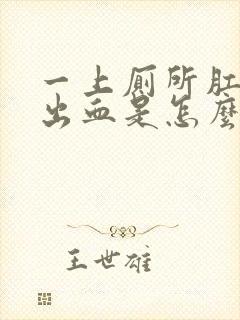 一上厕所肛
出血是怎麼
王世雄